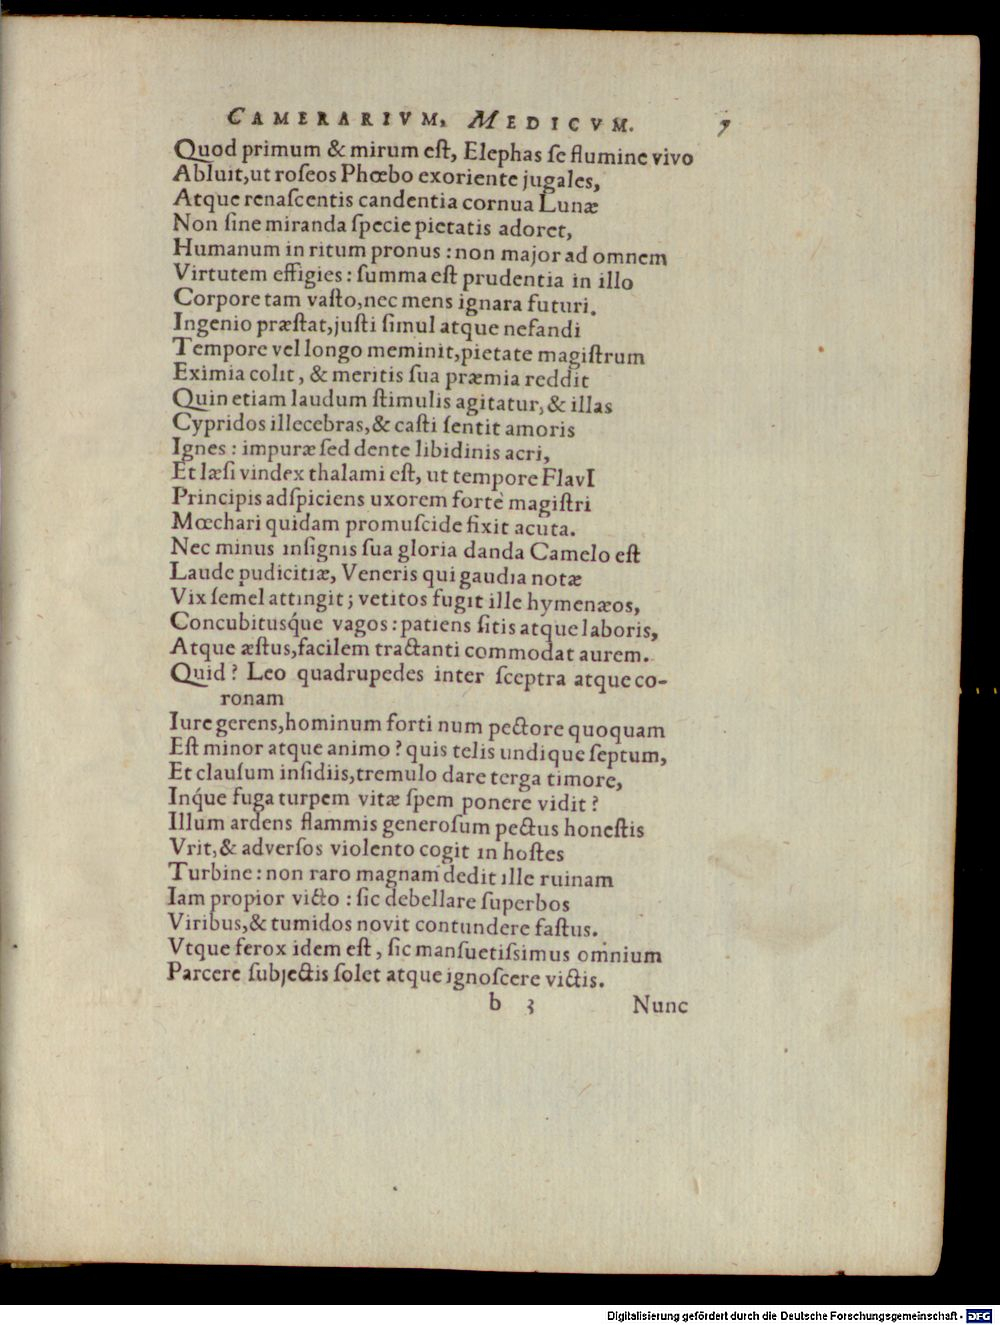 CAMERARIVM, MEDICVM. 7
Quod primum & mirum eſt, Elephas ſe flumine vivo
Abluit,ut roſeos Phœbo exoriente jugales,
Atque renaſcentis candentia cornua Lunæ
Non ſine miranda ſpecie pietatis adoret,
Humanum in ritum pronus : non major ad omnem
Virtutem effigies : ſumma eſt prudentia in illo
Corpore tam vaſto,nec mens ignara futuri.
Ingenio præſtat,juſti ſimul atque nefandi
Tempore vel longo meminit,pietate magiſtrum
Eximia colit, & meritis ſua præmia reddit
Quin etiam laudum ſtimulis agitatur, & illas
Cypridos illecebras,& caſti ſentit amoris
Ignes : impuræ ſed dente libidinis acri,
Et læſi vindex thalami eſt, ut tempore FlavI
Principis adſpiciens uxorem fortè magiſtri
Mœchari quidam promuſcide fixit acuta.
Nec minus inſignis ſua gloria danda Camelo eſt
Laude pudicitiæ, Veneris qui gaudia notæ
Vix ſemel attingit; vetitos fugit ille hymenæos,
Concubitusq́ue vagos : patiens ſitis atque laboris,
Atque æſtus,facilem tractanti commodat aurem.
Quid? Leo quadrupedes inter ſceptra atque co-
ronam
Iure gerens,hominum forti num pectore quoquam
Eſt minor atque animo? quis telis undique ſeptum,
Et clauſum inſidiis,tremulo dare terga timore,
Inq́ue fuga turpem vitæ ſpem ponere vidit?
Illum ardens flammis generoſum pectus honeſtis
Vrit,& adverſos violento cogit in hoſtes
Turbine : non raro magnam dedit ille ruinam
Iam propior victo : ſic debellare ſuperbos
Viribus,& tumidos novit contundere faſtus.
Vtque ferox idem eſt, ſic manſuetiſsimus omnium
Parcere ſubjectis ſolet atque ignoſcere victis.
b 3 Nunc
Digitalisierung gefördert durch die Deutsche Forschungsgemeinschaft - DFG